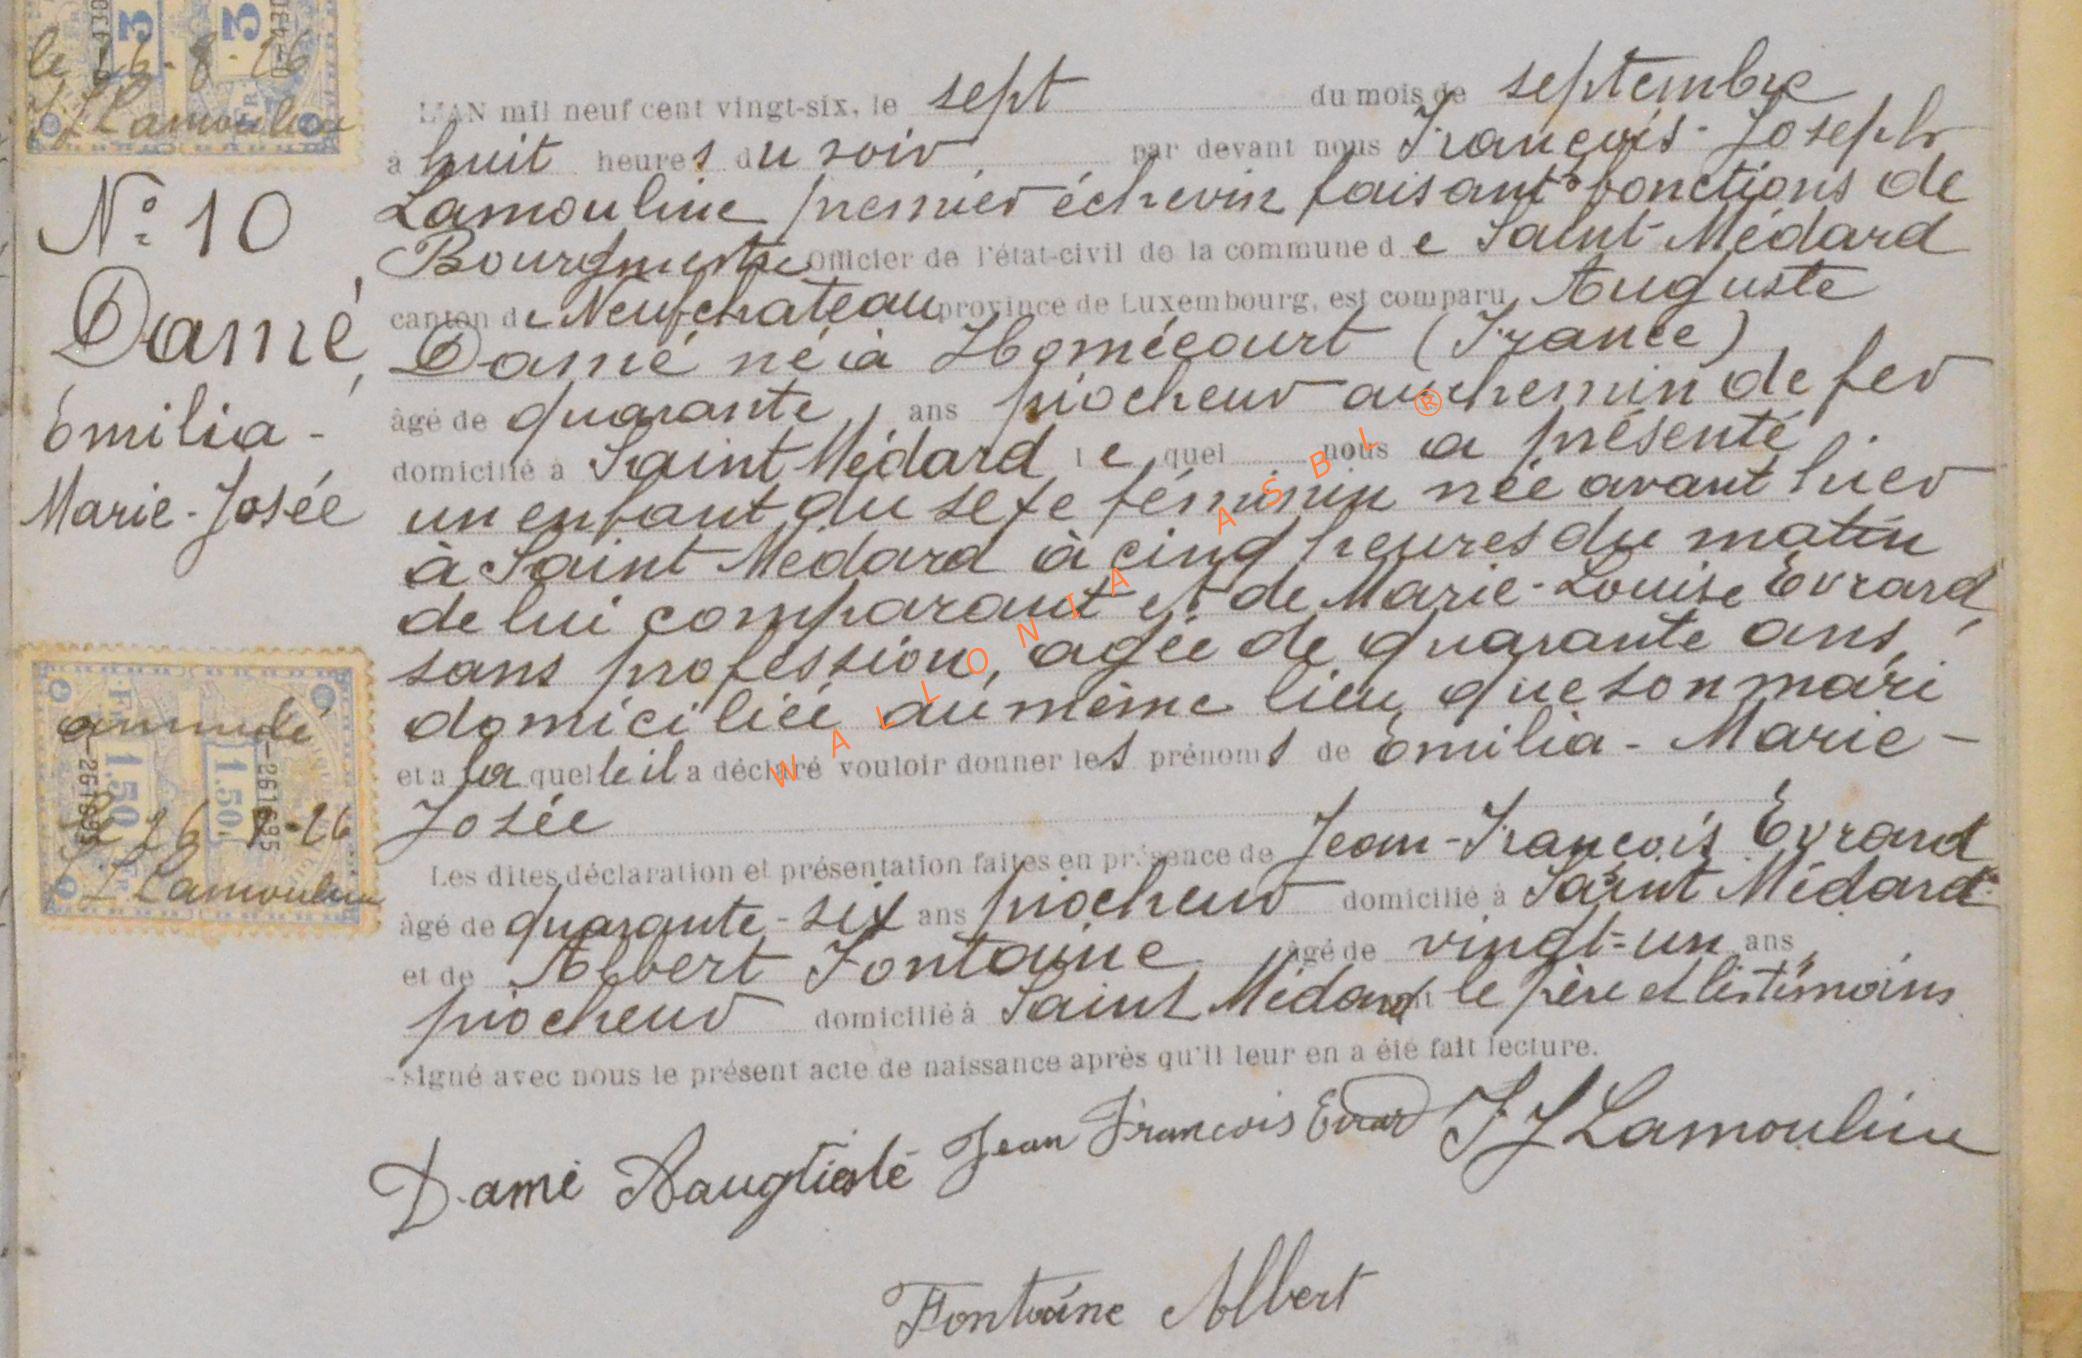 3 3
le 26-8-26
F J Lamouline
N° 10
Damé,
Emilia-
Marie-Josée
1.50 1.50
annulé
le 26 8-26
F J Lamouline
L'AN mil neuf cent vingt-six, le sept du mois de septembre
à huit heures du soir par devant nous François-Joseph
Lamouline premier échevin faisant fonctions de
Bourgmestre Officier de l'état-civil de la commune de Saint-Médard
canton de Neufchateau province de Luxembourg, est comparu Auguste
Damé né à Homécourt (France)
âgé de quarante ans piocheur au chemin de fer
domicilié à Saint Médard lequel nous a présenté
un enfant du sexe féminin née avant hier
à Saint-Médard à cinq heures du matin
de lui comparant et de Marie-Louise Evrard,
sans profession, agée de quarante ans,
domiciliée au même lieu que son mari
et a la quelle il a déclaré vouloir donner les prénoms de Emilia-Marie-
Josée
Les dites déclaration et présentation faites en présence de Jean-François Evrard
âgé de quarante-six ans piocheur domicilié à Saint Médard
et de Albert Fontaine âgé de vingt-un ans
piocheur domicilié à Saint Médard le père et les témoins
signé avec nous le présent acte de naissance après qu'il leur en a été fait lecture.
Damé Aaugtiesté Jean François Evrard F J Lamouline
Fontaine Albert
WALLONIA ASBL ®